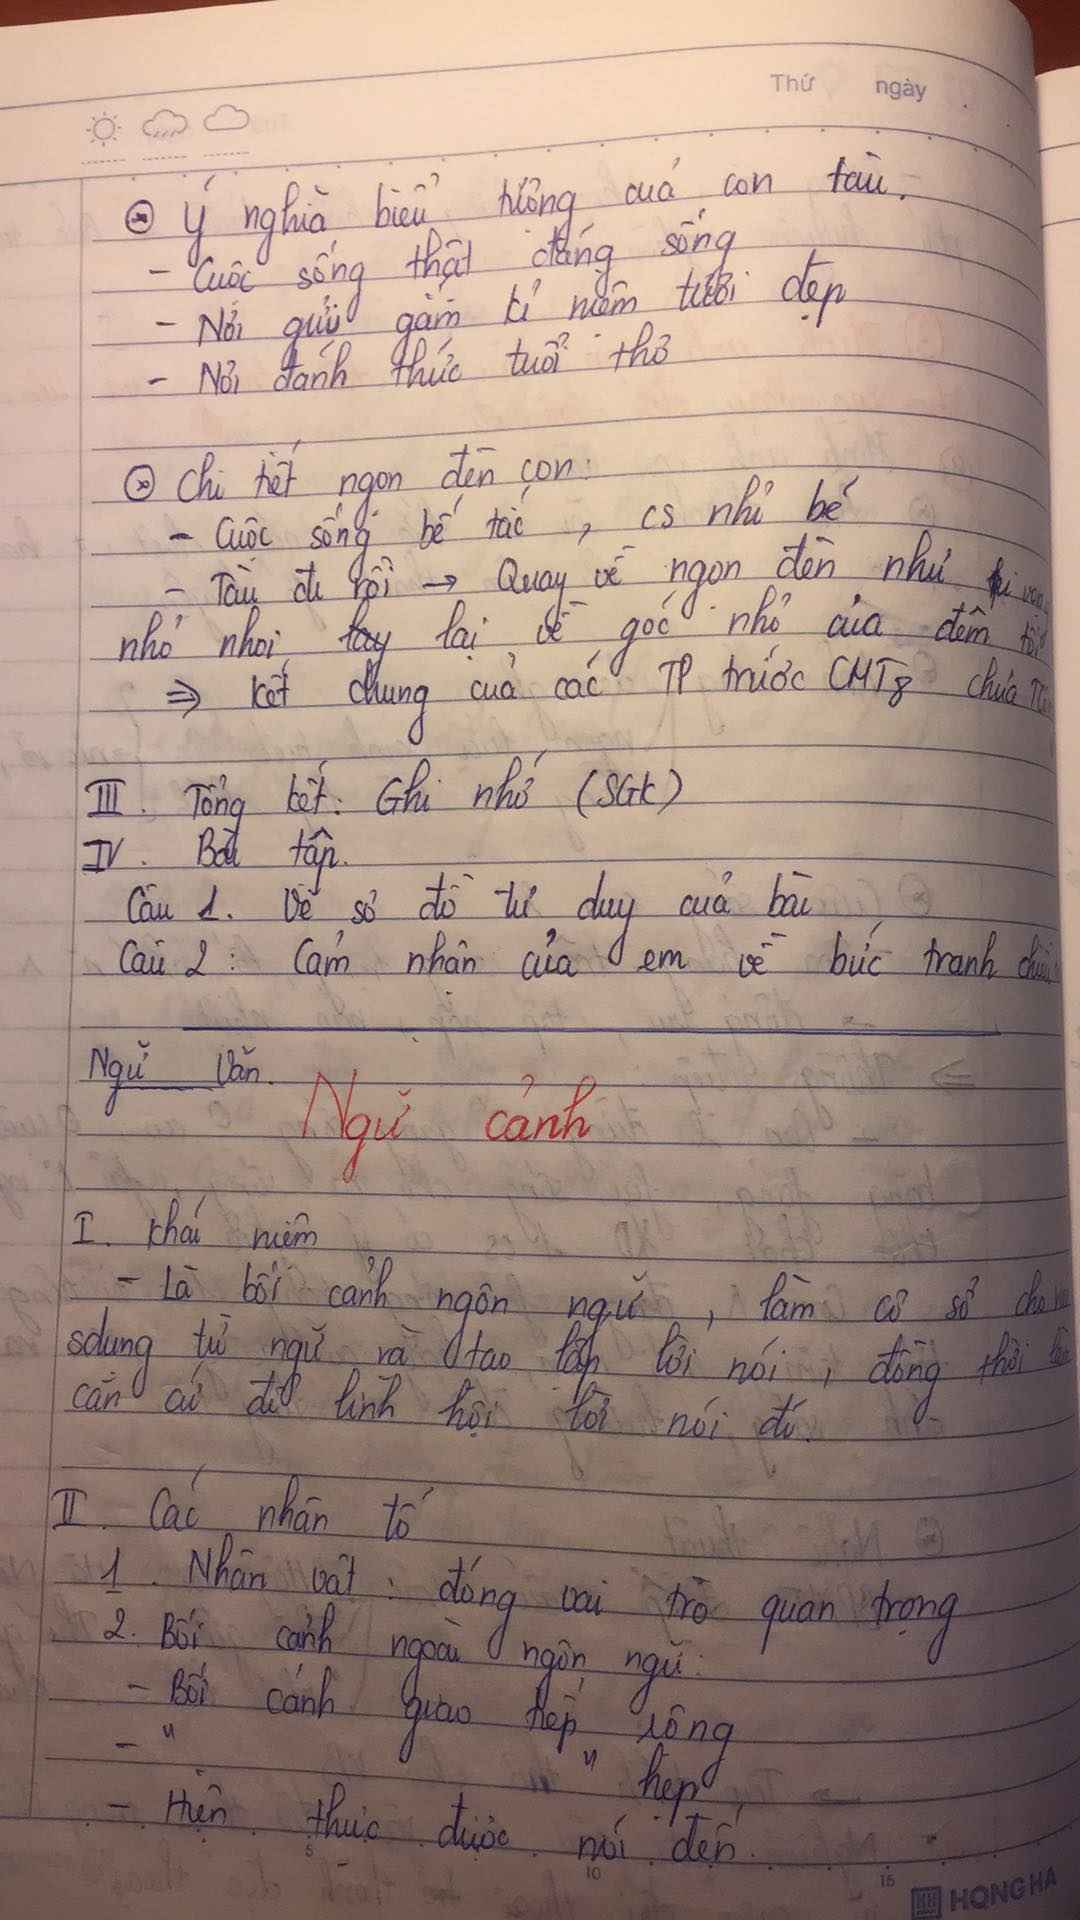 Thứ ngày
⊛ Ý nghĩa biểu tượng của con tàu.
- Cuộc sống thật đáng sống
- Nơi gửi gắm kỉ niệm tươi đẹp
- Nơi đánh thức tuổi thơ
⊛ Chi tiết ngọn đèn con:
- Cuộc sống bế tắc, cs nhỏ bé
- Tàu đi rồi → Quay về ngọn đèn như
nhỏ nhoi lại về góc nhỏ của đêm tối
⇒ Kết chung của các TP trước CMT8 chưa
III. Tổng kết: Ghi nhớ (SGK)
IV. Bài tập.
Câu 1. Vẽ sơ đồ tư duy của bài
Câu 2: Cảm nhận của em về bức tranh
Ngữ Văn.
Ngữ cảnh
I. Khái niệm
- Là bối cảnh ngôn ngữ, làm cơ sở cho
sdụng từ ngữ và tạo lập lời nói, đồng thời
căn cứ để lĩnh hội lời nói đó.
II. Các nhân tố
1. Nhân vật: đóng vai trò quan trọng
2. Bối cảnh ngoài ngôn ngữ:
- Bối cảnh giao tiếp rộng
- " " hẹp
- Hiện thực được nói đến.
5 10 15
HONG HA